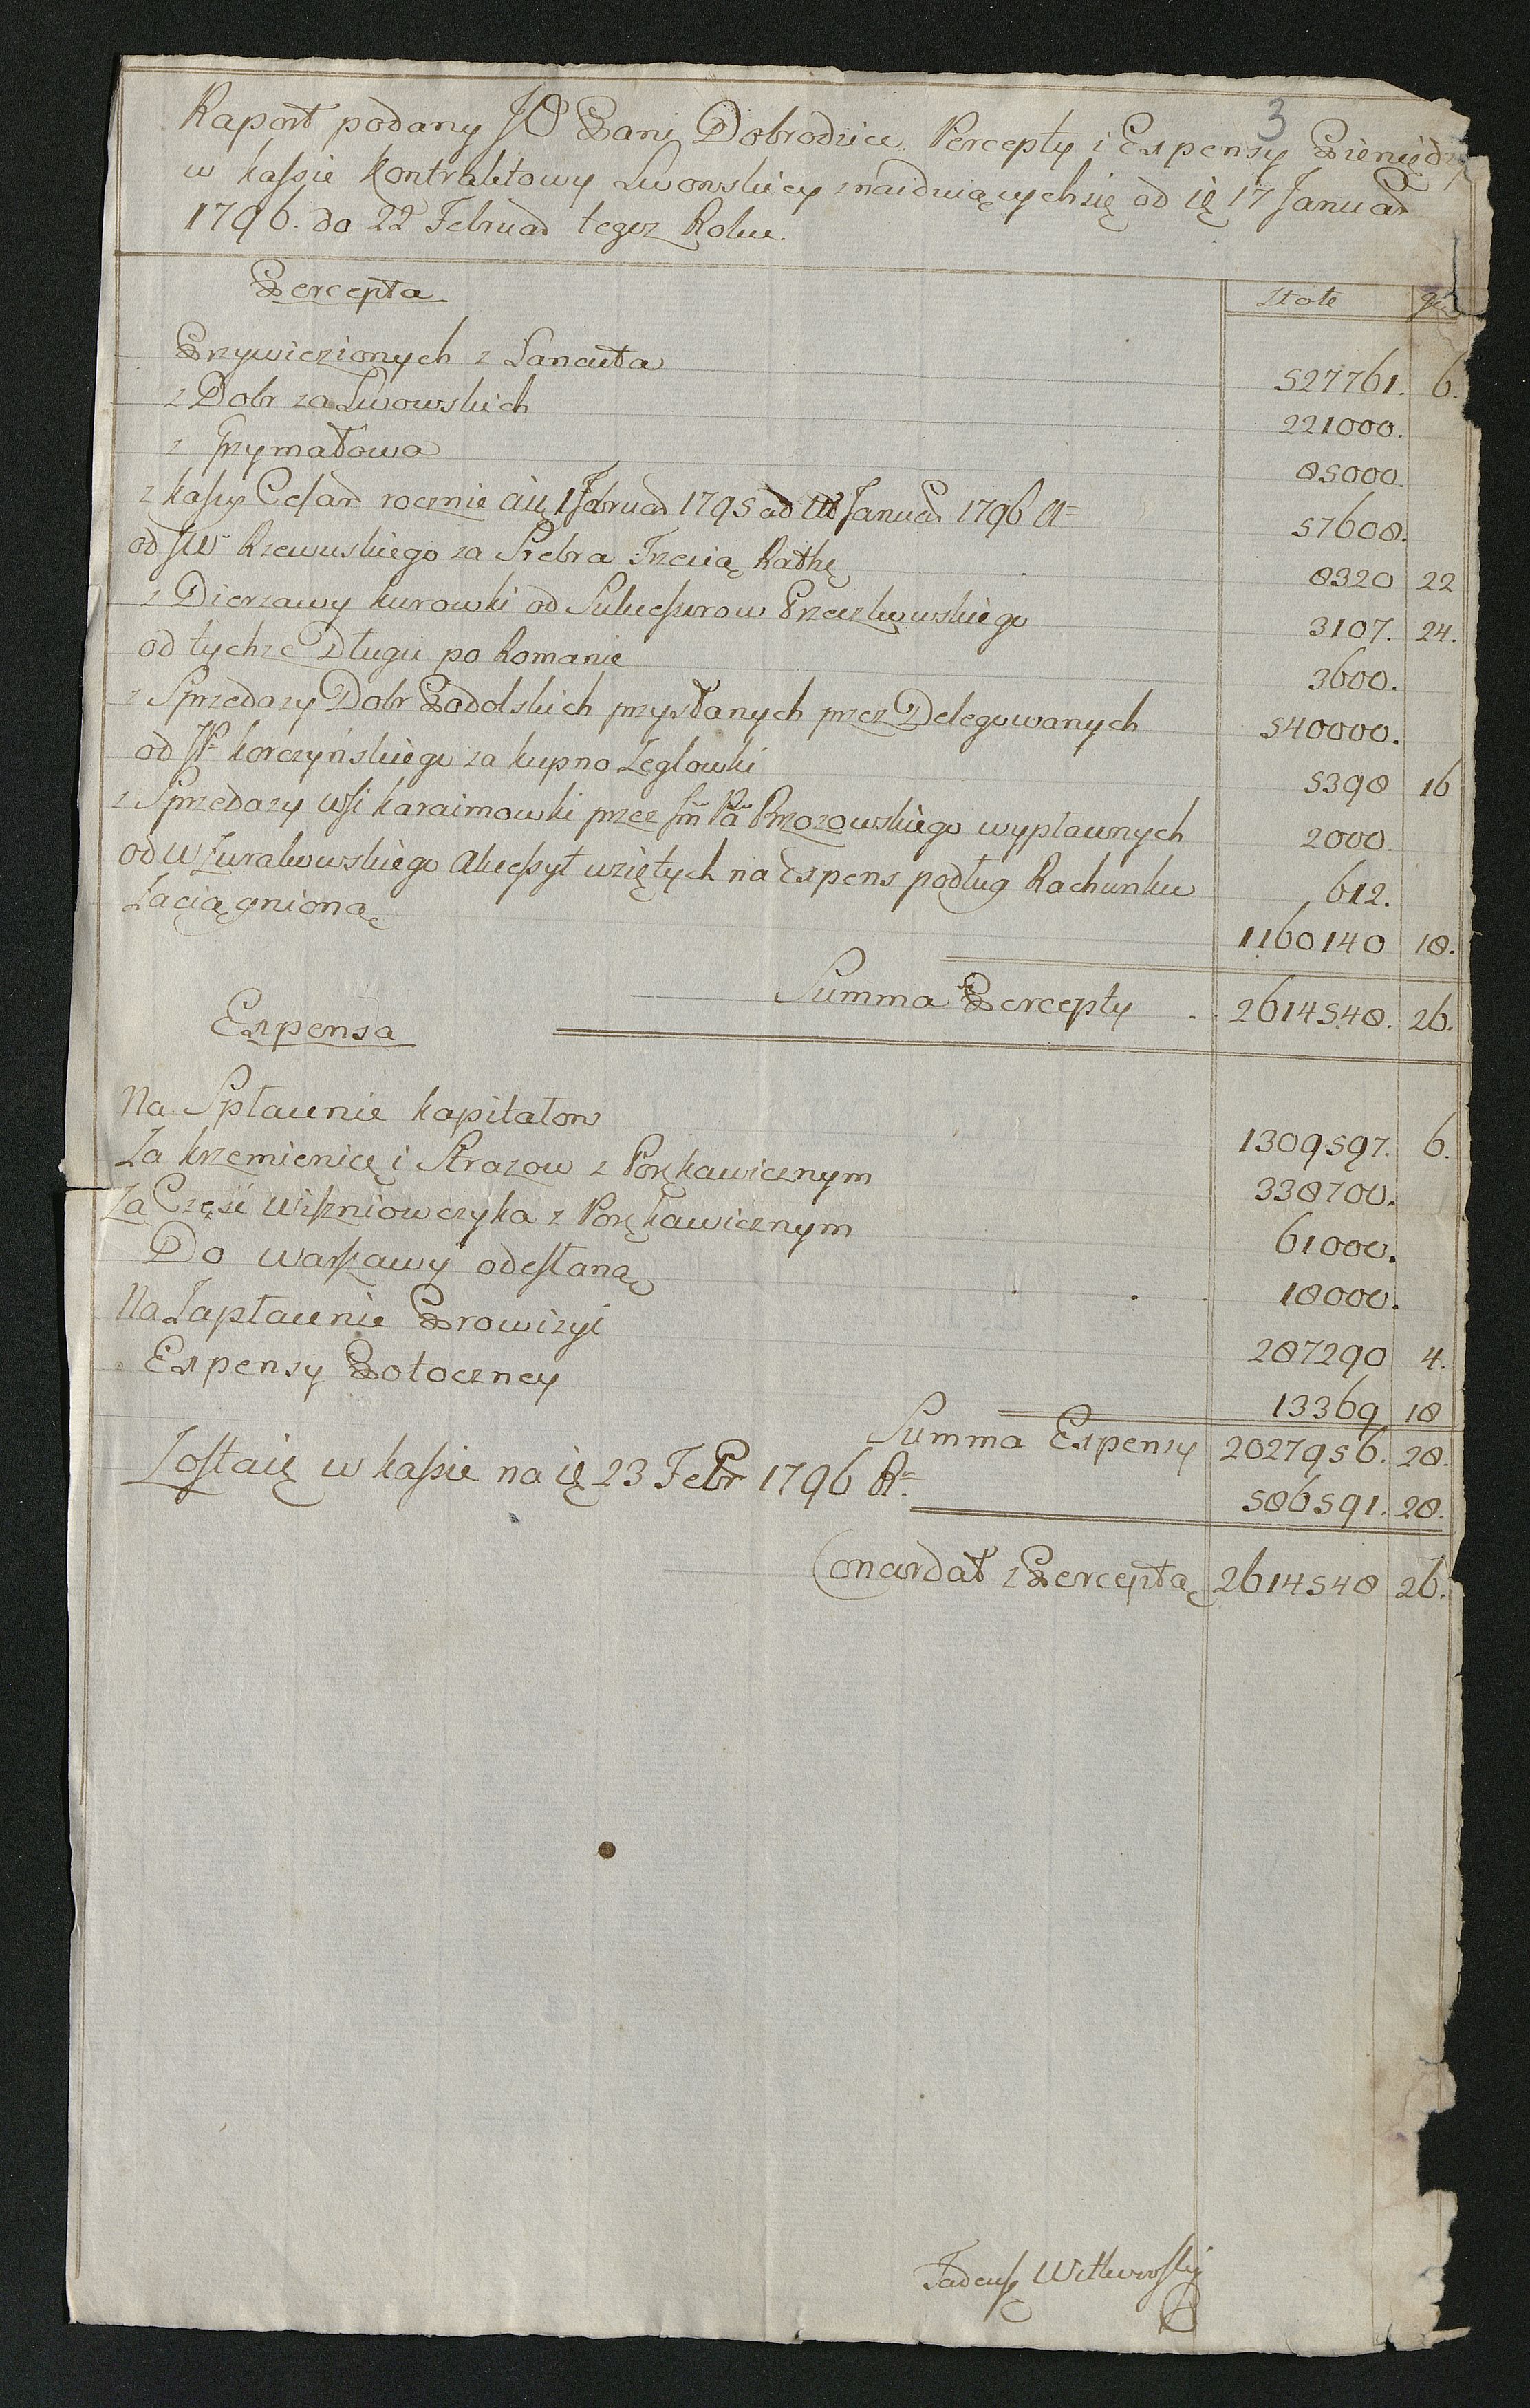 3
Raport podany JO Pani Dobrodzice. Percepty i Expensy Pieniędzy
w kaſsie kontraktowy Lwowskiey znaiduiących się od ię 17 Januar
1796. do 22 Februar tegoz Roku.
Percepta Złote gr
Przywiezionych z Lancuta 527761. 6.
z Dobr za Lwowskich 221000.
z Grzymałowa 85000.
z kaſsy Ceſar rocznie a ię 1 Februar 1795 ad Januar 1796 A= 57608.
od JW Rzewuskiego za Srebra Trzecią Rathę 8320 22
z Dierzawy kurowki od Sukceſsorow Przeczkowskiego 3107. 24.
od tychze Długu po Romanie 3600.
z Sprzedazy Dobr Podolskich przysłanych przez Delegowanych 540000.
od JP korczyńskiego za kupno Zeglowki 5398 16
z Sprzedazy Wsi karaimowki przez Jm Pa Brzozowskiego wypłaunych 2000.
od W Zurakowskiego Akceſsyt wziętych na Expens podług Rachunku 612.
Zaciągnioną 1160140 18.
Summa Percepty 2614548. 26.
Expensa
Na Spłaunie kapitałow 1309597. 6.
Za krzemienicę i Strazow z Porękawicznym 338700.
Za Częsć Wiſzniowczyka z Porękawicznym 61000.
Do Warſzawy odeſłaną 18000.
Na Zapłaunie Prowizyi 287290 4.
Expensy Potoczney 13369 18
Summa Expensy 2027956. 28.
Zoſtaię w kaſsie na ię 23 Febr 1796 R= 586591. 28.
Concordat z Perceptą 2614548 26.
Tadeuſz Witkowſki